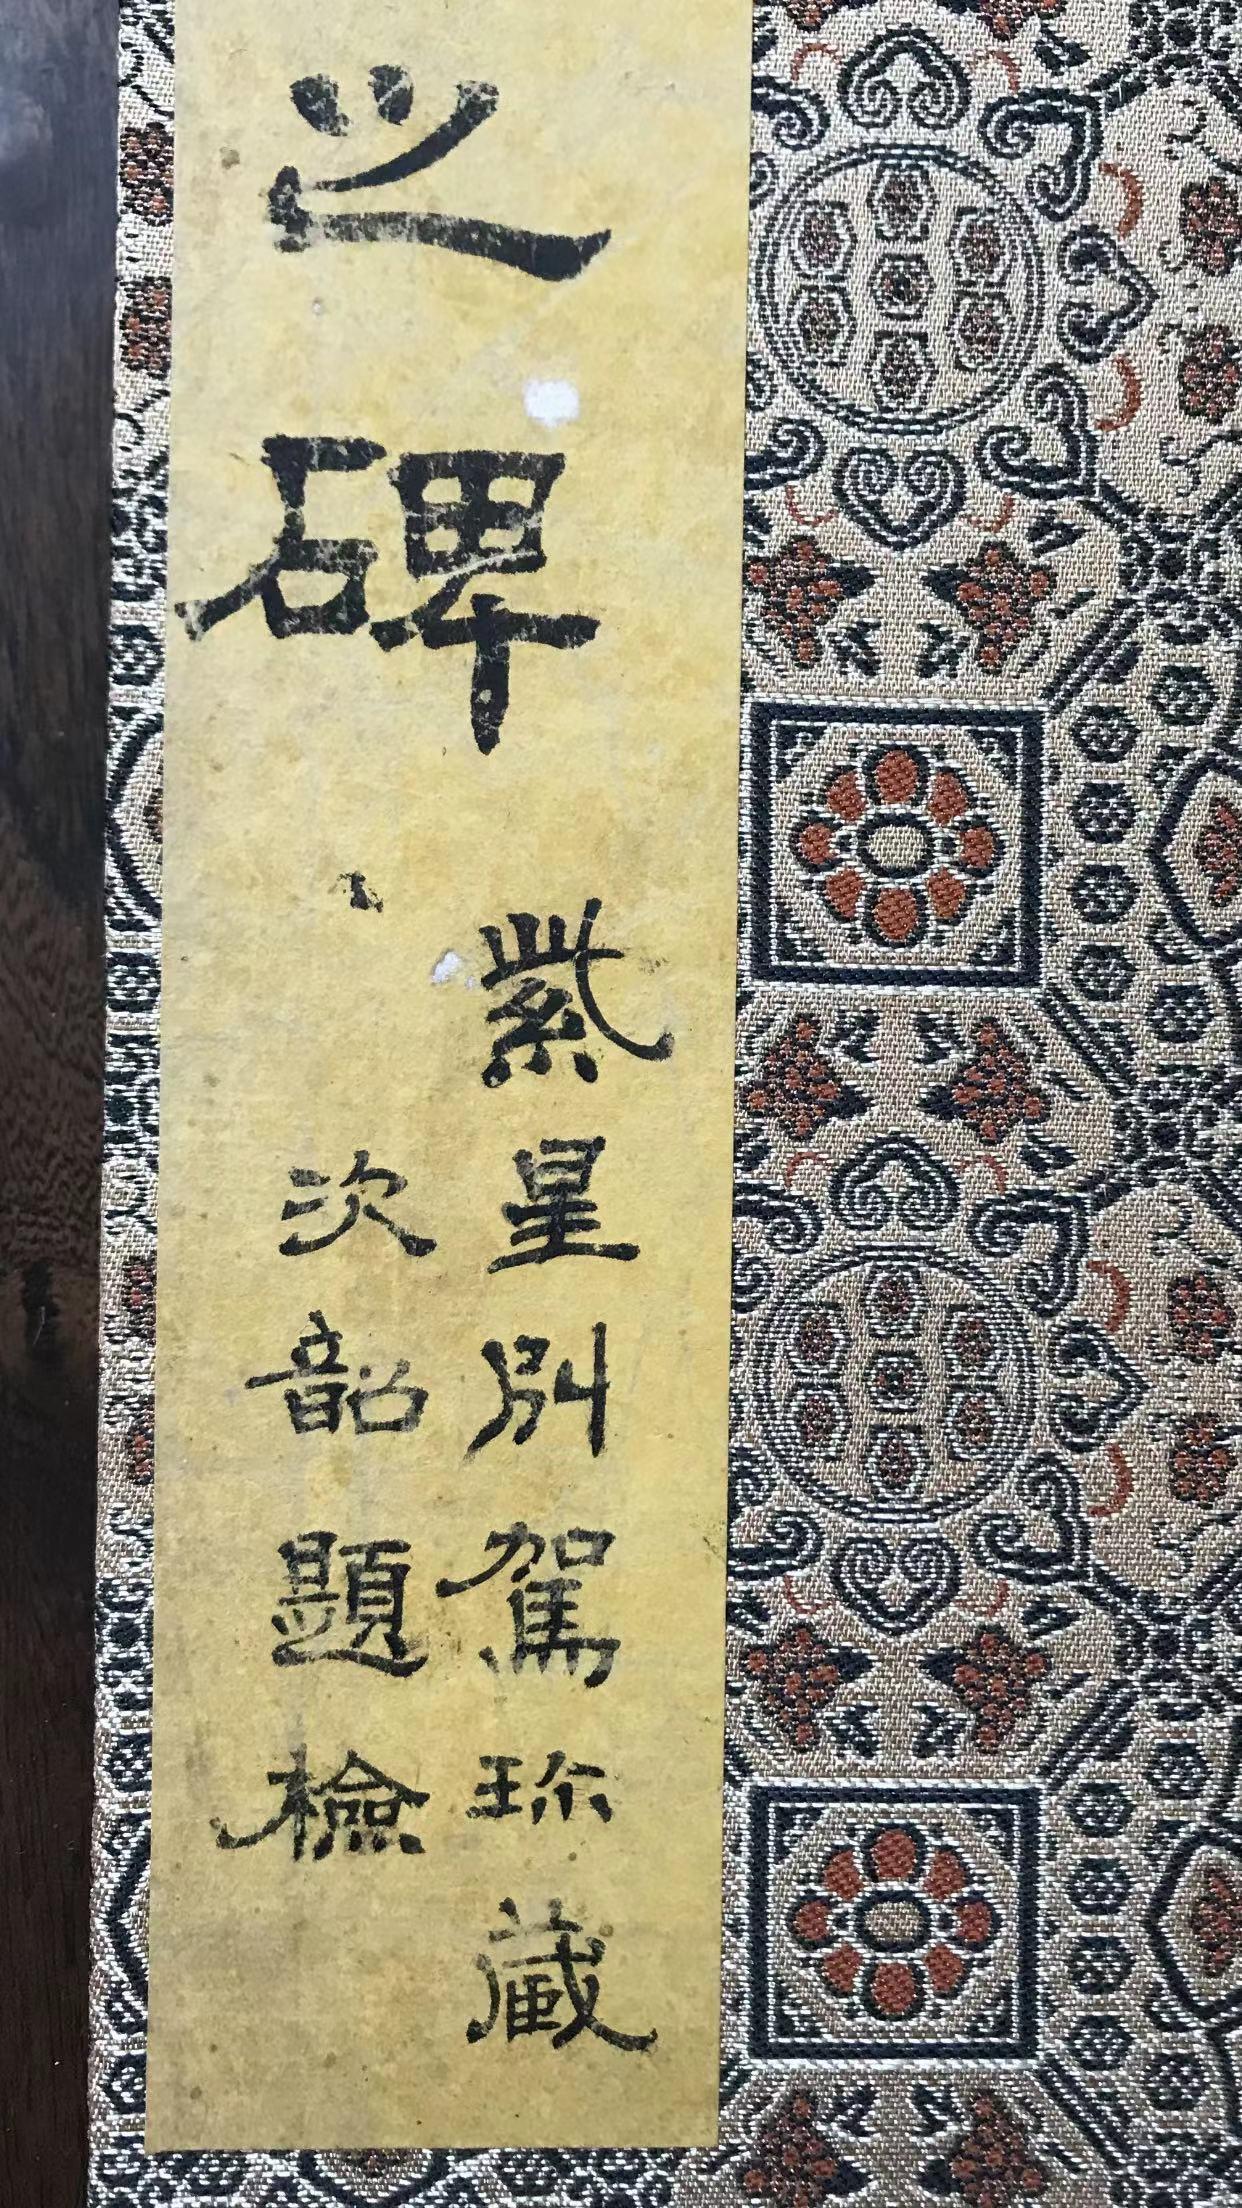 之碑
紫星別駕珎藏
次韶題檢